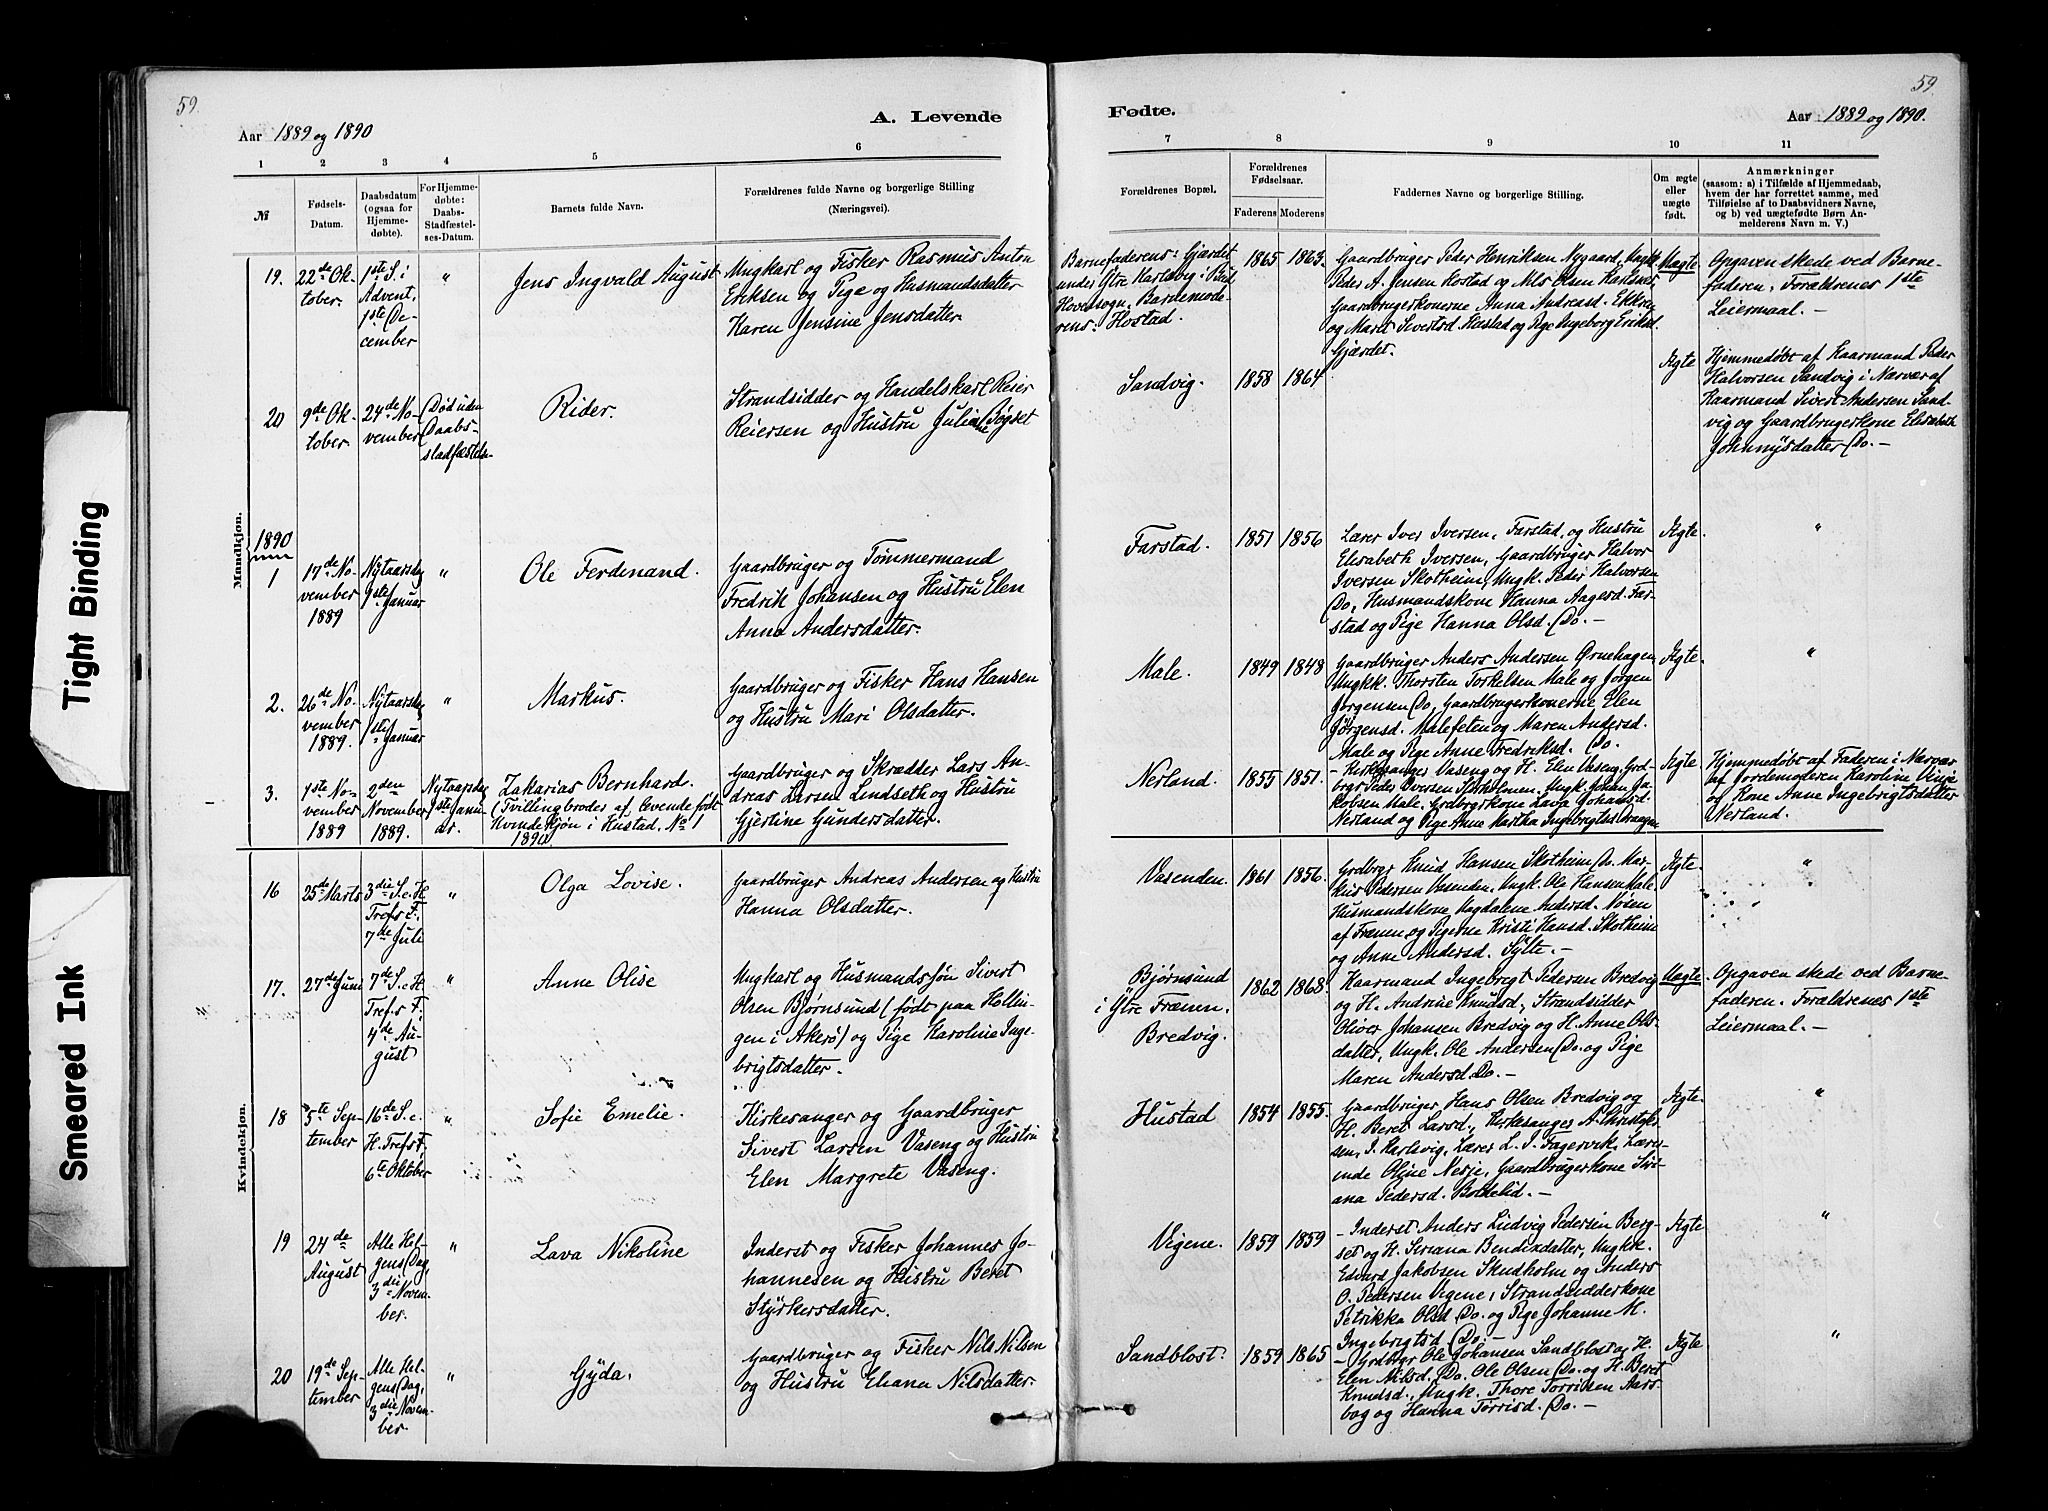 59.
59.
A. Levende
Fødte.
Aar 1889 og 1890
Aar 1889 og 1890.
1 2 3 4 5 6
7 8 9 10 11
№
Fødsels-
Datum.
Daabsdatum
(ogsaa for
Hjemme-
døbte).
For Hjemme-
døbte:
Daabs-
Stadfæstel-
ses-Datum.
Barnets fulde Navn.
Forældrenes fulde Navne og borgerlige Stilling
(Næringsvei).
Forældrenes Bopæl.
Forældrenes
Fødselsaar.
Faderens
Moderens
Faddernes Navne og borgerlige Stilling.
Om ægte
eller
uægte
født.
Anmærkninger
(saasom: a) i Tilfælde af Hjemmedaab,
hvem der har forrettet samme, med
Tilføielse af to Daabsvidners Navne,
og b) ved uægtefødte Børn An-
melderens Navn m. V.)
Mandkjøn.
19.
22de Ok-
tober.
1ste S. i
Advent,
1ste De-
cember
"
Jens Ingvald August
Ungkarl og Fisker Rasmus Anton
Eriksen og Pige og Husmandsdatter
Karen Jensine Jensdatter.
Barnefaderens: Gjærdet
under Ytre Harldsvig i Bud
Hovedsogn, Barnemode-
rens: Hostad.
1865
1863.
Gaardbruger Peder Henriksen Nygaard, Ungk.
Peder A. Jensen Hostad og Nils Olsen
Gaardbrugerkonerne Anna Andreasd. Ekkren
og Maret Sivertsd. Hustad og Pige Ingeborg Eriksd.
Gjærdet.
Uægte
Opgaven skede ved Barne-
faderen. Forældrenes 1ste
Leiermaal. -
20
9de Ok-
tober.
24de No-
vember
Død uden
Daabs-
stadfæstelse
Rider.
Strandsidder og Handelskarl Reier
Reiersen og Hustru Juliane Bogset
Sandvig.
1858
1864
Ægte
Hjemmedøbt af Kaarmand Peder
Halvorsen Sandvig i Nærvær af
Kaarmand Sivert Andersen Sand-
vig og Gaardbrugerkone Elisabeth
Johnnysdatter Do. -
1890
1
17de No-
vember
1889
Nytaarsdag
1ste Januar
"
Ole Ferdinand.
Gaardbruger og Tømmermand
Fredrik Johansen og Hustru Elen
Anna Andersdatter.
Farstad.
1851
1856
Lærer Iver Iversen, Farstad, og Hustru
Elisabeth Iversen, Gaardbruger Halvor
Iversen Skotheim, Ungk. Peder Halvorsen
Do, Husmandskone Hanna Aagesd. Far-
stad og Pige Hanna Olsd. Do. -
Ægte.
"
2.
26de No-
vember
1889.
Nytaarsdag
1ste Januar
"
Markus.
Gaardbruger og Fisker Hans Hansen
og Hustru Mari Olsdatter.
Male.
1849
1848
Gaardbruger Anders Andersen Ørnehagen
Ungkk. Thorsten Torkelsen Male og Jørgen
Jørgensen Do, Gaardbrugerkonerne Elen
Jørgensd. Malefeten og Maren Andersd.
Male og Pige Anne Fredriksd. Do.
Ægte.
"
3.
1ste No-
vember
1889
2den
November
1889.
Nytaarsdag
1ste Janu-
ar.
Zakarias Bernhard.
(Tvillingbroder af levende født
Kvindekjøn i Hustad, No 1
1890
Gaardbruger og Skrædder Lars An-
dreas Larsen Lindseth og Hustru
Gjertine Gundersdatter.
Nerland.
1855
1851.
- Kirkesanger Vaseng og H. Elen Vaseng, Grd-
brgr Peder Iversen Storholmen, Ungk. Johan Ja-
kobsen Male, Grdbrgrkone Lava Johansd.
Nerland og Pige Anne Martha Ingebrigtsd.
Ægte
Hjemmedøbt af Faderen i Nærvær
af Jordemoderen Karoline Vinje
og Kone Anne Ingebrigtsdatter
Nerland.
Kvindekjøn.
16
25de Marts
3die S. e. H.
Trefs F.
7de Juli
"
Olga Lovise.
Gaardbruger Andreas Andersen og Hustru
Hanna Olsdatter.
Vasenden.
1861
1856.
Grdbrgr Knud Hansen Skotheim, Do. Mar-
kus Pedersen Vasenden, Ungk. Ole Hansen Male,
Husmandskone Magdalene Andersd. Nøsen
af Frænen og Pigerne Kristi Hansd. Skotheim
og Anne Andersd. Sylte. -
Ægte.
"
17.
27de Juni
7de S. e. H.
Trefs F.
4de Au-
gust
"
Anne Olise
Ungkarl og Husmandssøn Sivert
Olsen Bjørnsund (født paa Hollin-
gen i Akerø) og Pige Karoline Inge-
brigtsdatter.
Bjørnsund
i Ytre Frænen.
Bredvig.
1862
1868.
Kaarmand Ingebrigt Pedersen Bredvig
og H. Andrine Knudsd., Strandsidder
Oliver Johansen Bredvig og H. Anne Ols-
datter, Ungk. Ole Andersen Do. og Pige
Maren Andersd. Do. -
Uægte
Opgaven skede ved Barne-
faderen. Forældrenes 1ste
Leiermaal. -
18
5te Sep-
tember
16de S. e.
H. Trefs F,
6te Oktober
"
Sofie Emelie.
Kirkesanger og Gaardbruger
Sivert Larsen Vaseng og Hustru
Elen Margrete Vaseng.
Hustad
1854
1855.
Gaardbruger Hans Olsen Bredvig og
H. Beret Larsd., Kirkesanger A. Christof-
sen, I. Harldsvig, Lærer L. I. Fagervik, Lærer-
inde Oline Nesje, Gaardbrugerkone Siri-
ana Pedersd. Bollelid. -
Ægte.
"
19
24de
August
Alle Hel-
gens Dag,
3die Novem-
ber.
"
Lava Nikoline
Inderst og Fisker Johannes Jo-
hannesen og Hustru Beret
Styrkersdatter.
Vigene.
1859
1859
- Inderst Anders Ludvig Pedersen Berg-
set og H. Seriana Bendixdatter, Ungkk.
Edvard Jakobsen Skudholm og Anders
O. Pedersen Vigene, Strandsidderkone
Petrikka Olsd Do. og Pige Johanne M.
Ingebrigtsd. Do. -
Ægte
"
20
19de Sep-
tember
Alle Hel-
gens Dag,
3die Novem-
ber.
"
Gyda.
Gaardbruger og Fisker Nils Nilsen
og Hustru Eliana Nilsdatter.
Sandblost.
1859
1865
- Grdbrgr Ole Johansen Sandblost og H.
Elen Nilsd. Do. Ole Olsen Do. og H. Beret
Knudsd., Ungk. Thore Torrisen Aars-
bog og Hanna Torrisd. Do. -
Ægte.
"
Tight Binding
Smeared Ink